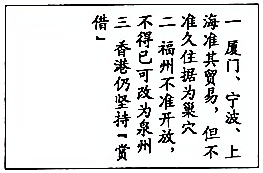 一 厦门、宁波、上
海准其贸易，但不
准久住据为巢穴
二 福州不准开放，
不得已可改为泉州
三 香港仍坚持「赏
借」